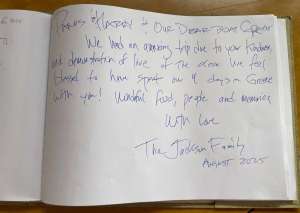 & Our Dream Home
We had an amazing trip due to your kindness
and demonstration of love of the area. We feel
blessed to have spent our 4 days in Greece
with you! Wonderful food, people and memories
With love
The Jackson Family
August 2025